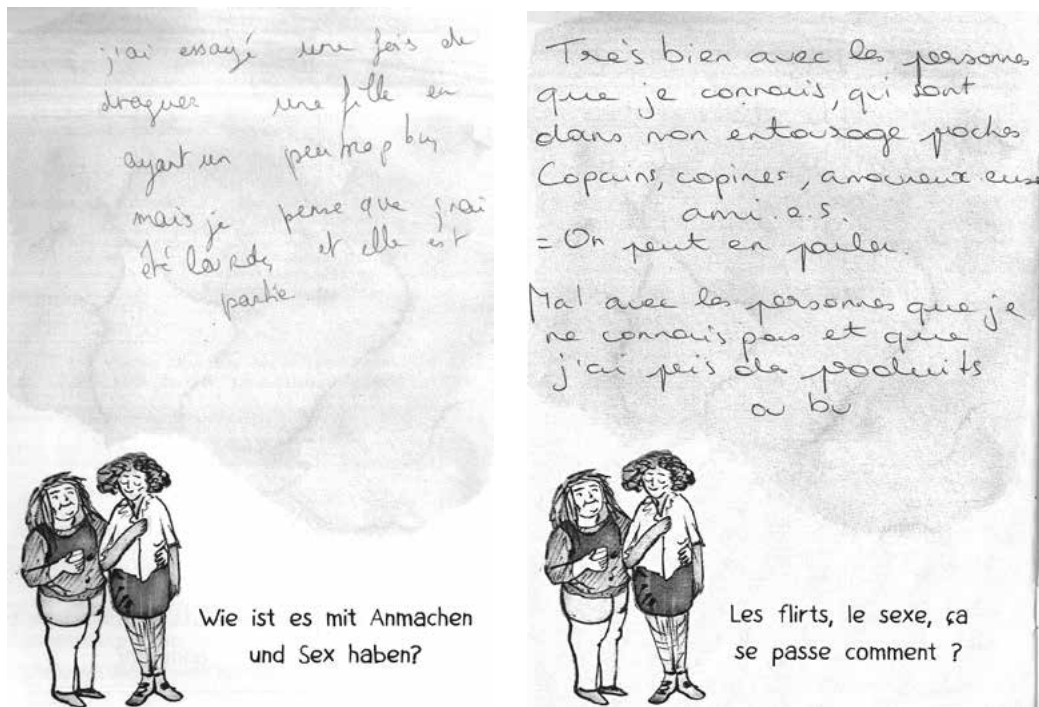 j'ai essayé une fois de
draguer une fille en
ayant un peu trop bu
mais je pense que j'ai
été lourde et elle est
partie
Wie ist es mit Anmachen
und Sex haben?
Très bien avec les personnes
que je connais, qui sont
dans mon entourage poches
Copains, copines, amoureux euse
ami.e.s.
= On peut en parler.
Mal avec les personnes que je
ne connais pas et que
j'ai pris des produits
ou bu
Les flirts, le sexe, ça
se passe comment ?